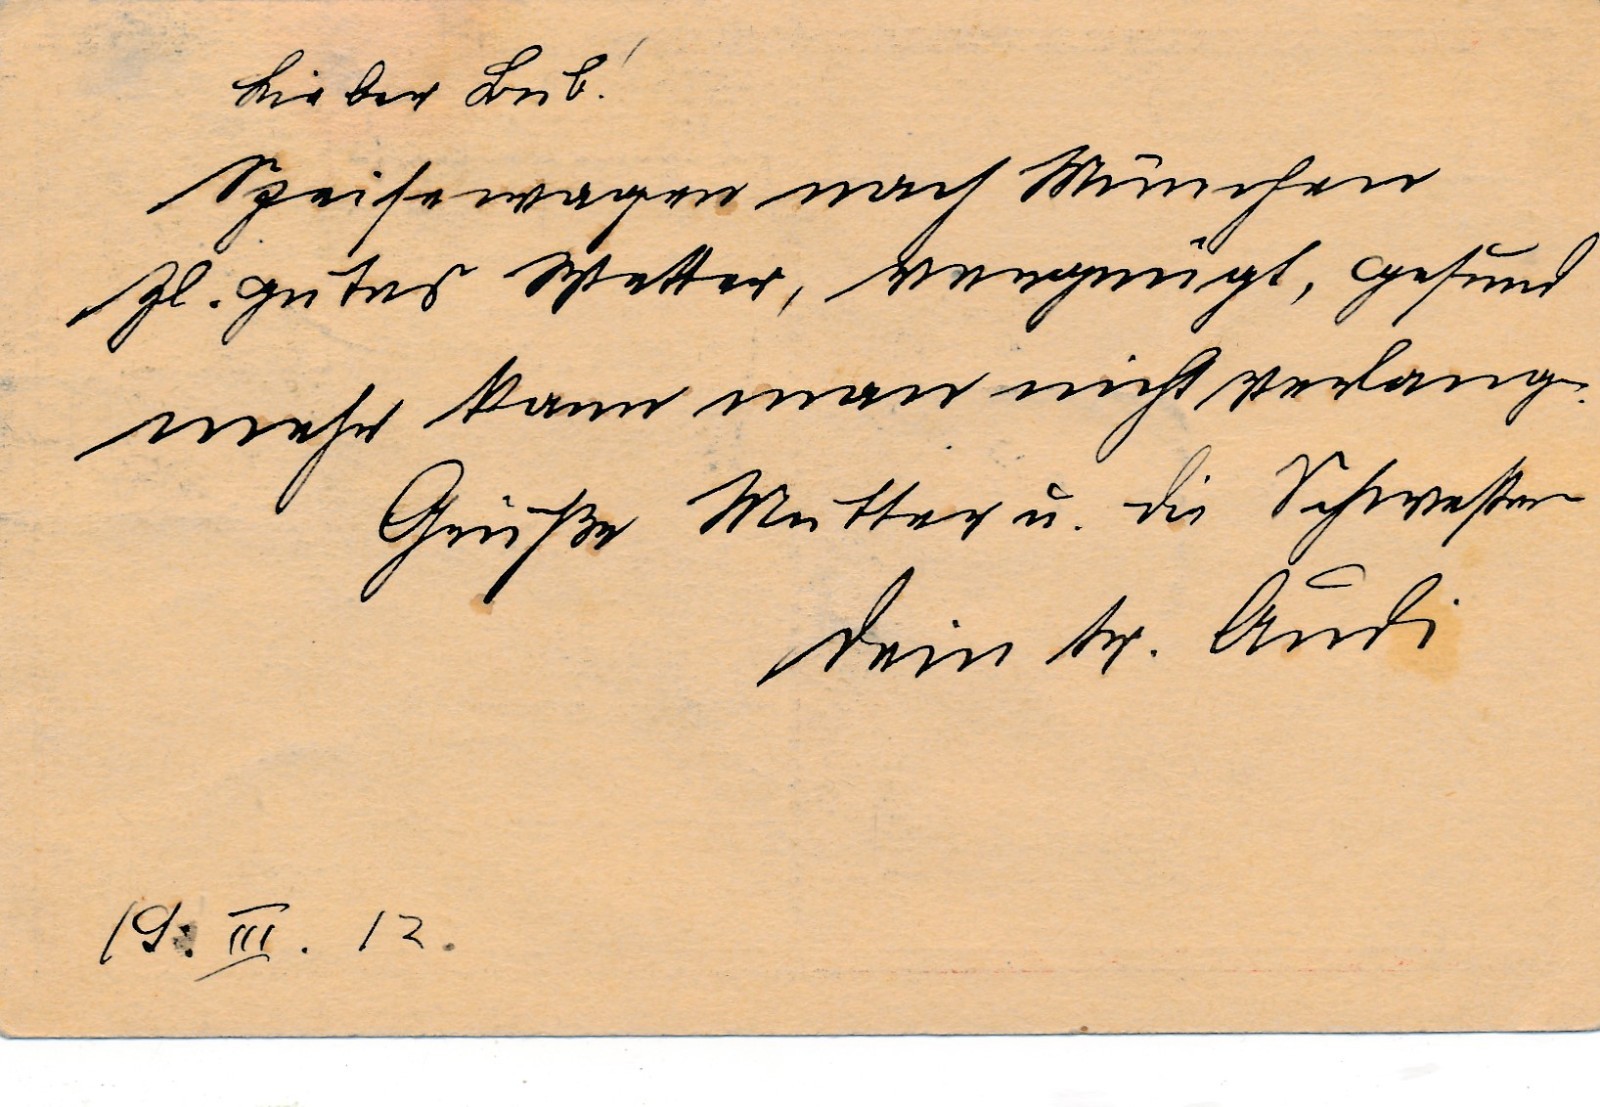 Lieber Bub!
Speisewagen nach München
gutes Wetter, vergnügt, gesund
mehr kann man nicht verlang.
Grüße Mutter u. die Schwestern
Dein tr. Audi
19. III. 12.